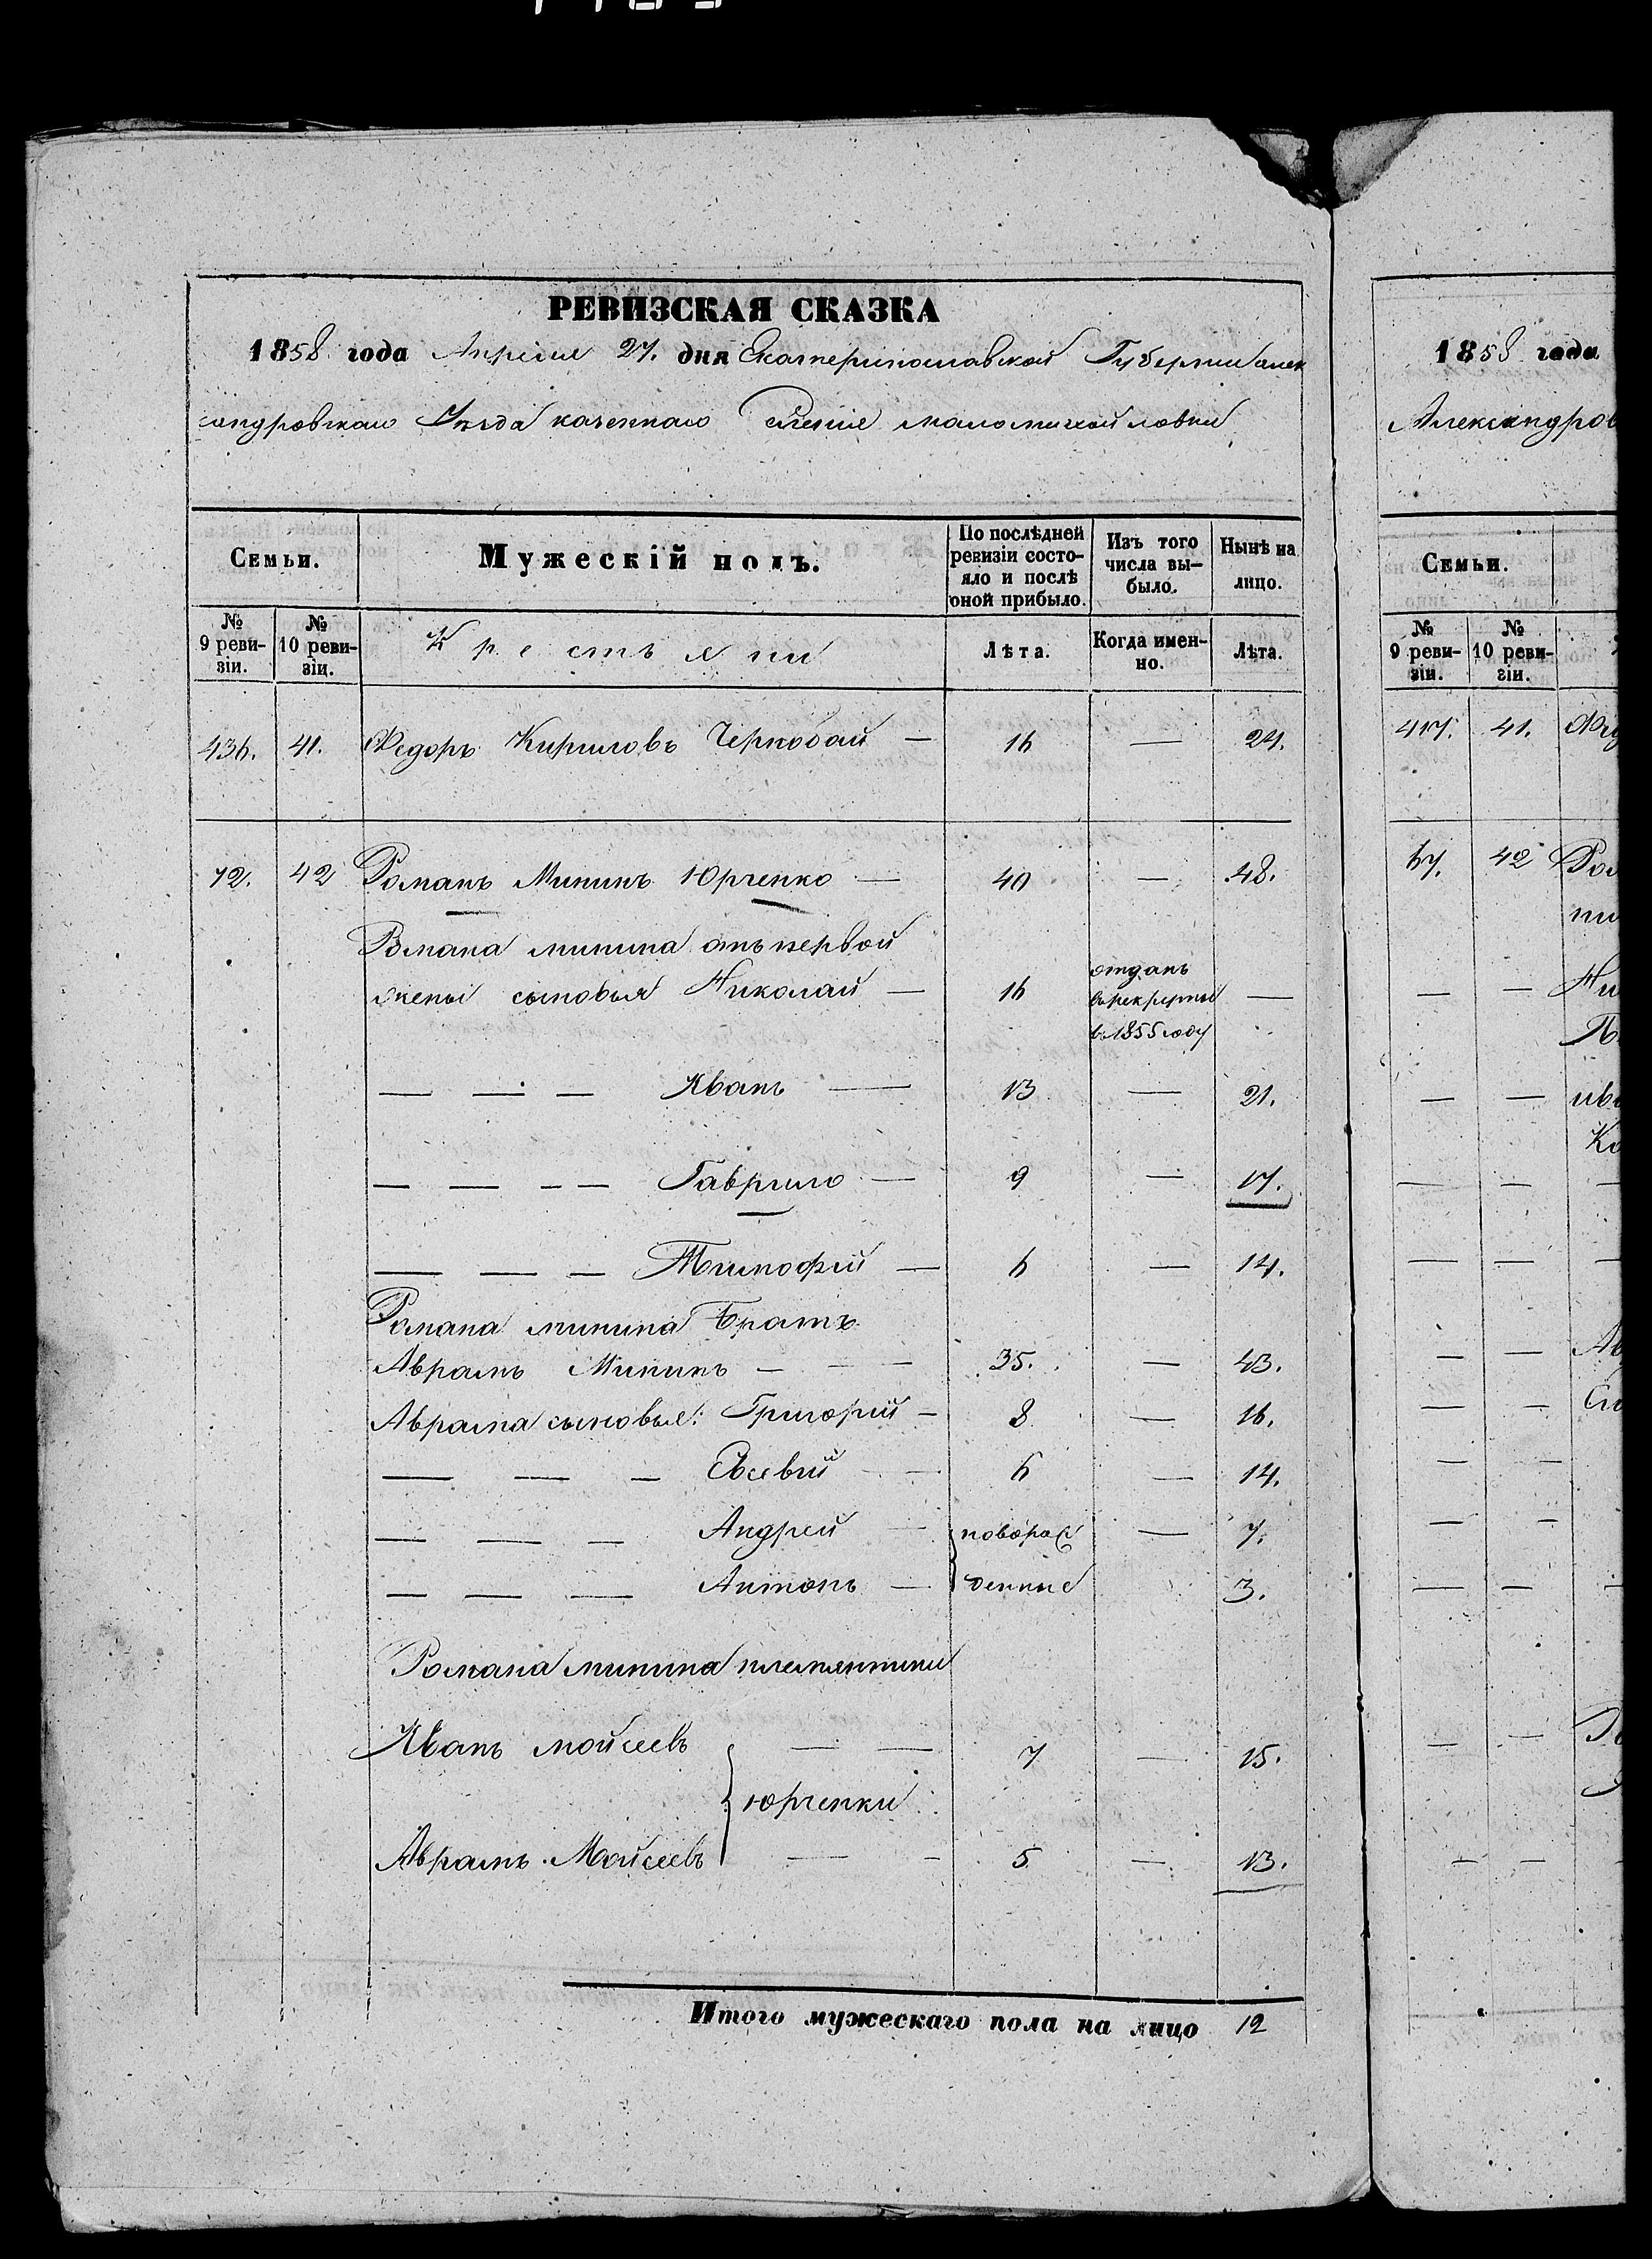 РЕВИЗСКАЯ СКАЗКА
1858 года Апреля 27. дня Екатеринославской Губернии алек
сандровскаго Уезда казеннаго селенiе маломихайловки
Семьи. Мужескiй полъ. По послѣдней ревизiи состо- яло и послѣ оной прибыло. Изъ того числа вы- было. Нынѣ на лицо.
№ 9 реви- зiи. № 10 реви- зiи. Крестьяни Лѣта. Когда имен- но. Лѣта.
436. 41. Федоръ Кириловъ Черкобай — 16 — 24.
72. 42 Романъ Мининъ Юрченко — 40 — 48.
Романа минина отъ первой
жены сыновья Николай — 16 отданъ въ рекруты в 1855 году —
— — — Иванъ — 13 — 21.
— — — — Гаврило — 9 — 17.
— — — Тимофей — 6 — 14.
Романа минина Братъ
Аврамъ Мининъ — — — 35. — 43.
Аврама сыновья: Григорий — 8 — 16.
— — — Евсевий — 6 — 14.
— — — Андрей — новорож — 7.
— — — Антонъ — денные 3.
Романа минина племянники
Иванъ мойсеевъ — — 7 — 15.
юрченки
Аврамъ Мойсеевъ — — 5 — 13.
Итого мужескаго пола на лицо 12
1858 года
Александров
Семьи.
№ 9 реви- зiи. № 10 реви- зiи.
417. 41.
67. 42 Ром